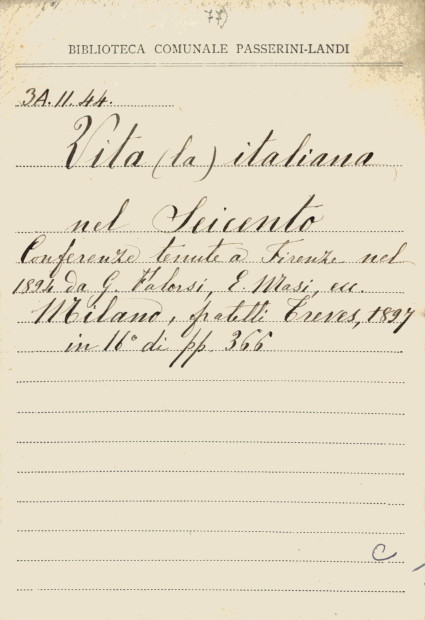 77)
BIBLIOTECA COMUNALE PASSERINI-LANDI
3A.II.44.
Vita (la) italiana
nel Seicento
Conferenze tenute a Firenze nel
1894 da G. Falorsi, E. Masi, ecc.
Milano, fratelli Treves, 1897
in 16° di pp. 366
C